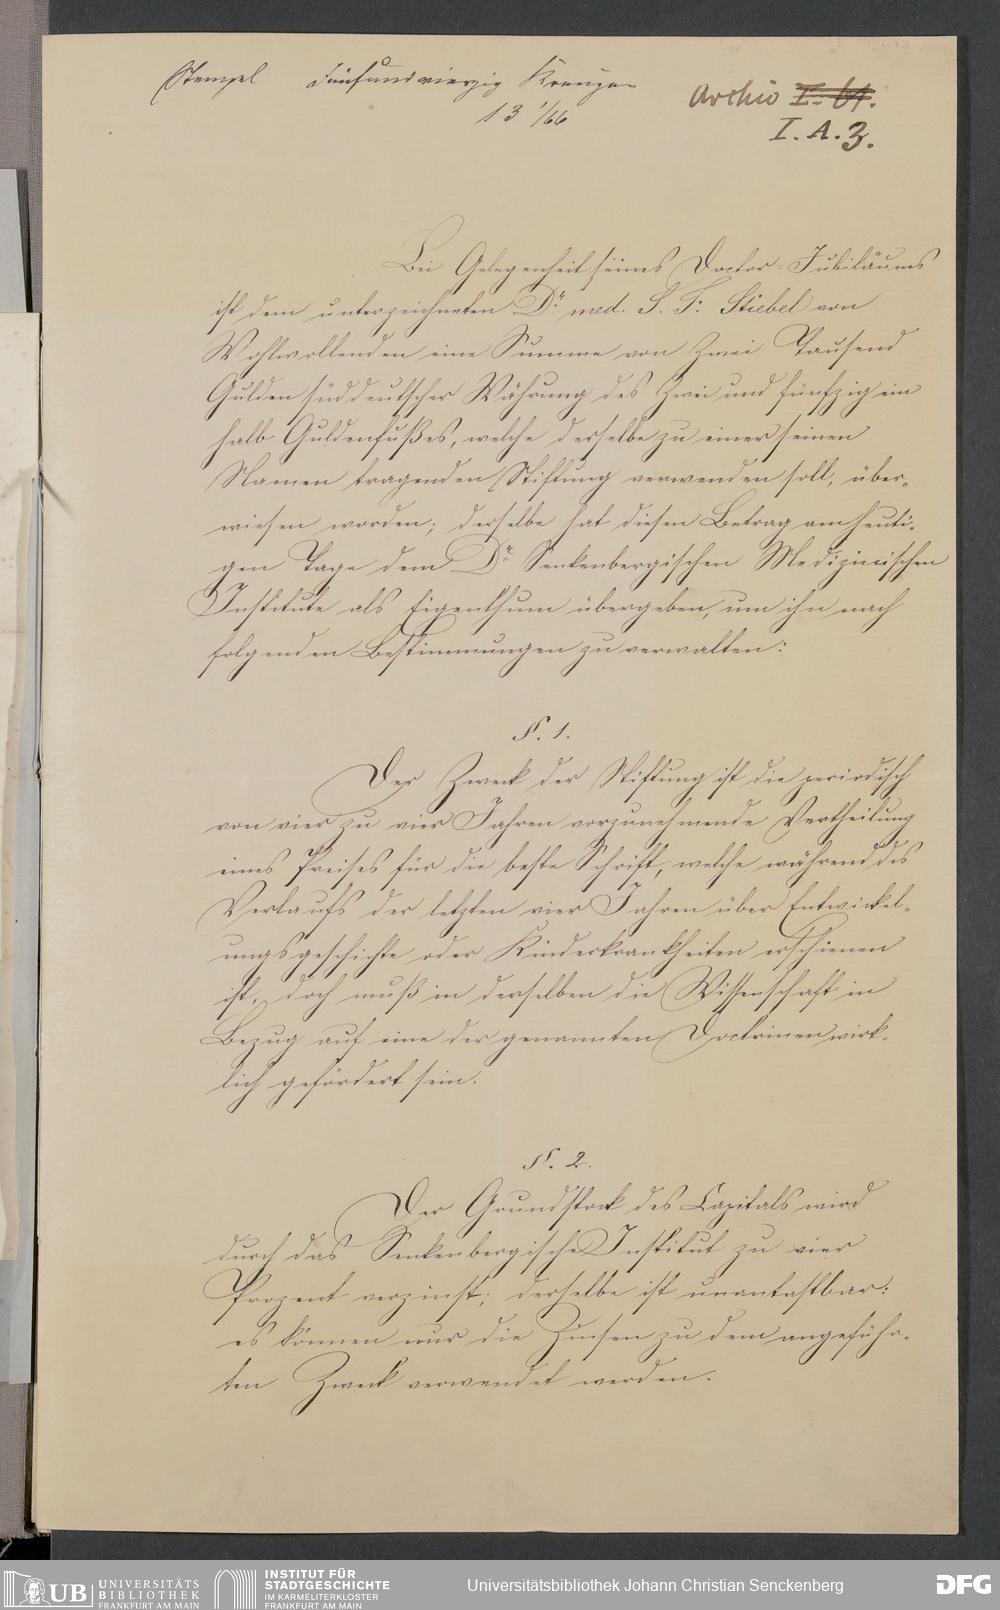 Stempel Fünfundvierzig Kreuzer
13 1/66
Archiv I. 61.
I. A. 3.
Bei Gelegenheit seines Doctor-Jubiläums
ist dem unterzeichneten Dr. med. S. F. Stiebel von
Wohlwollenden eine Summe von Zwei Tausend
Gulden süddeutscher Währung des Zwei und fünfzig ein
halb Guldenfußes, welche derselbe zu einer seinen
Namen tragenden Stiftung verwenden soll, über-
wiesen worden; derselbe hat diesen Betrag am heuti-
gen Tage dem Dr. Senkenbergischen Medizinischen
Institute als Eigenthum übergeben, um ihn nach
folgenden Bestimmungen zu verwalten:
§. 1.
Der Zweck der Stiftung ist die periodisch
von vier zu vier Jahren vorzunehmende Vertheilung
eines Preises für die beste Schrift, welche während des
Verlaufs der letzten vier Jahren über Entwickel-
ungsgeschichte oder Kinderkrankheiten erschienen
ist, doch muß in derselben die Wissenschaft in
Bezug auf eine der genannten Doctrinen wirk-
lich gefördert sein.
§. 2.
Der Grundstock des Capitals wird
durch das Senkenbergische Institut zu vier
Prozent verzinst; derselbe ist unantastbar:
es können nur die Zinsen zu dem angeführ-
ten Zweck verwendet werden.
UB UNIVERSITÄTS
BIBLIOTHEK
FRANKFURT AM MAIN
INSTITUT FÜR
STADTGESCHICHTE
IM KARMELITERKLOSTER
FRANKFURT AM MAIN
Universitätsbibliothek Johann Christian Senckenberg
DFG